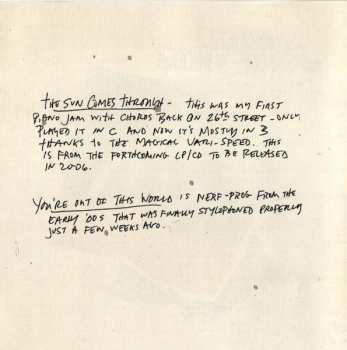 THE SUN COMES THROUGH - THIS WAS MY FIRST
PIANO JAM WITH CHORDS BACK ON 26TH STREET - ONLY
PLAYED IT IN C AND NOW IT'S MOSTLY IN B
THANKS TO THE MAGICAL VARI-SPEED. THIS
IS FROM THE FORTHCOMING LP/CD TO BE RELEASED
IN 2006.
YOU'RE OUT OF THIS WORLD IS NERF-PROG FROM THE
EARLY '00S THAT WAS FINALLY STYLOPHONED PROPERLY
JUST A FEW WEEKS AGO.